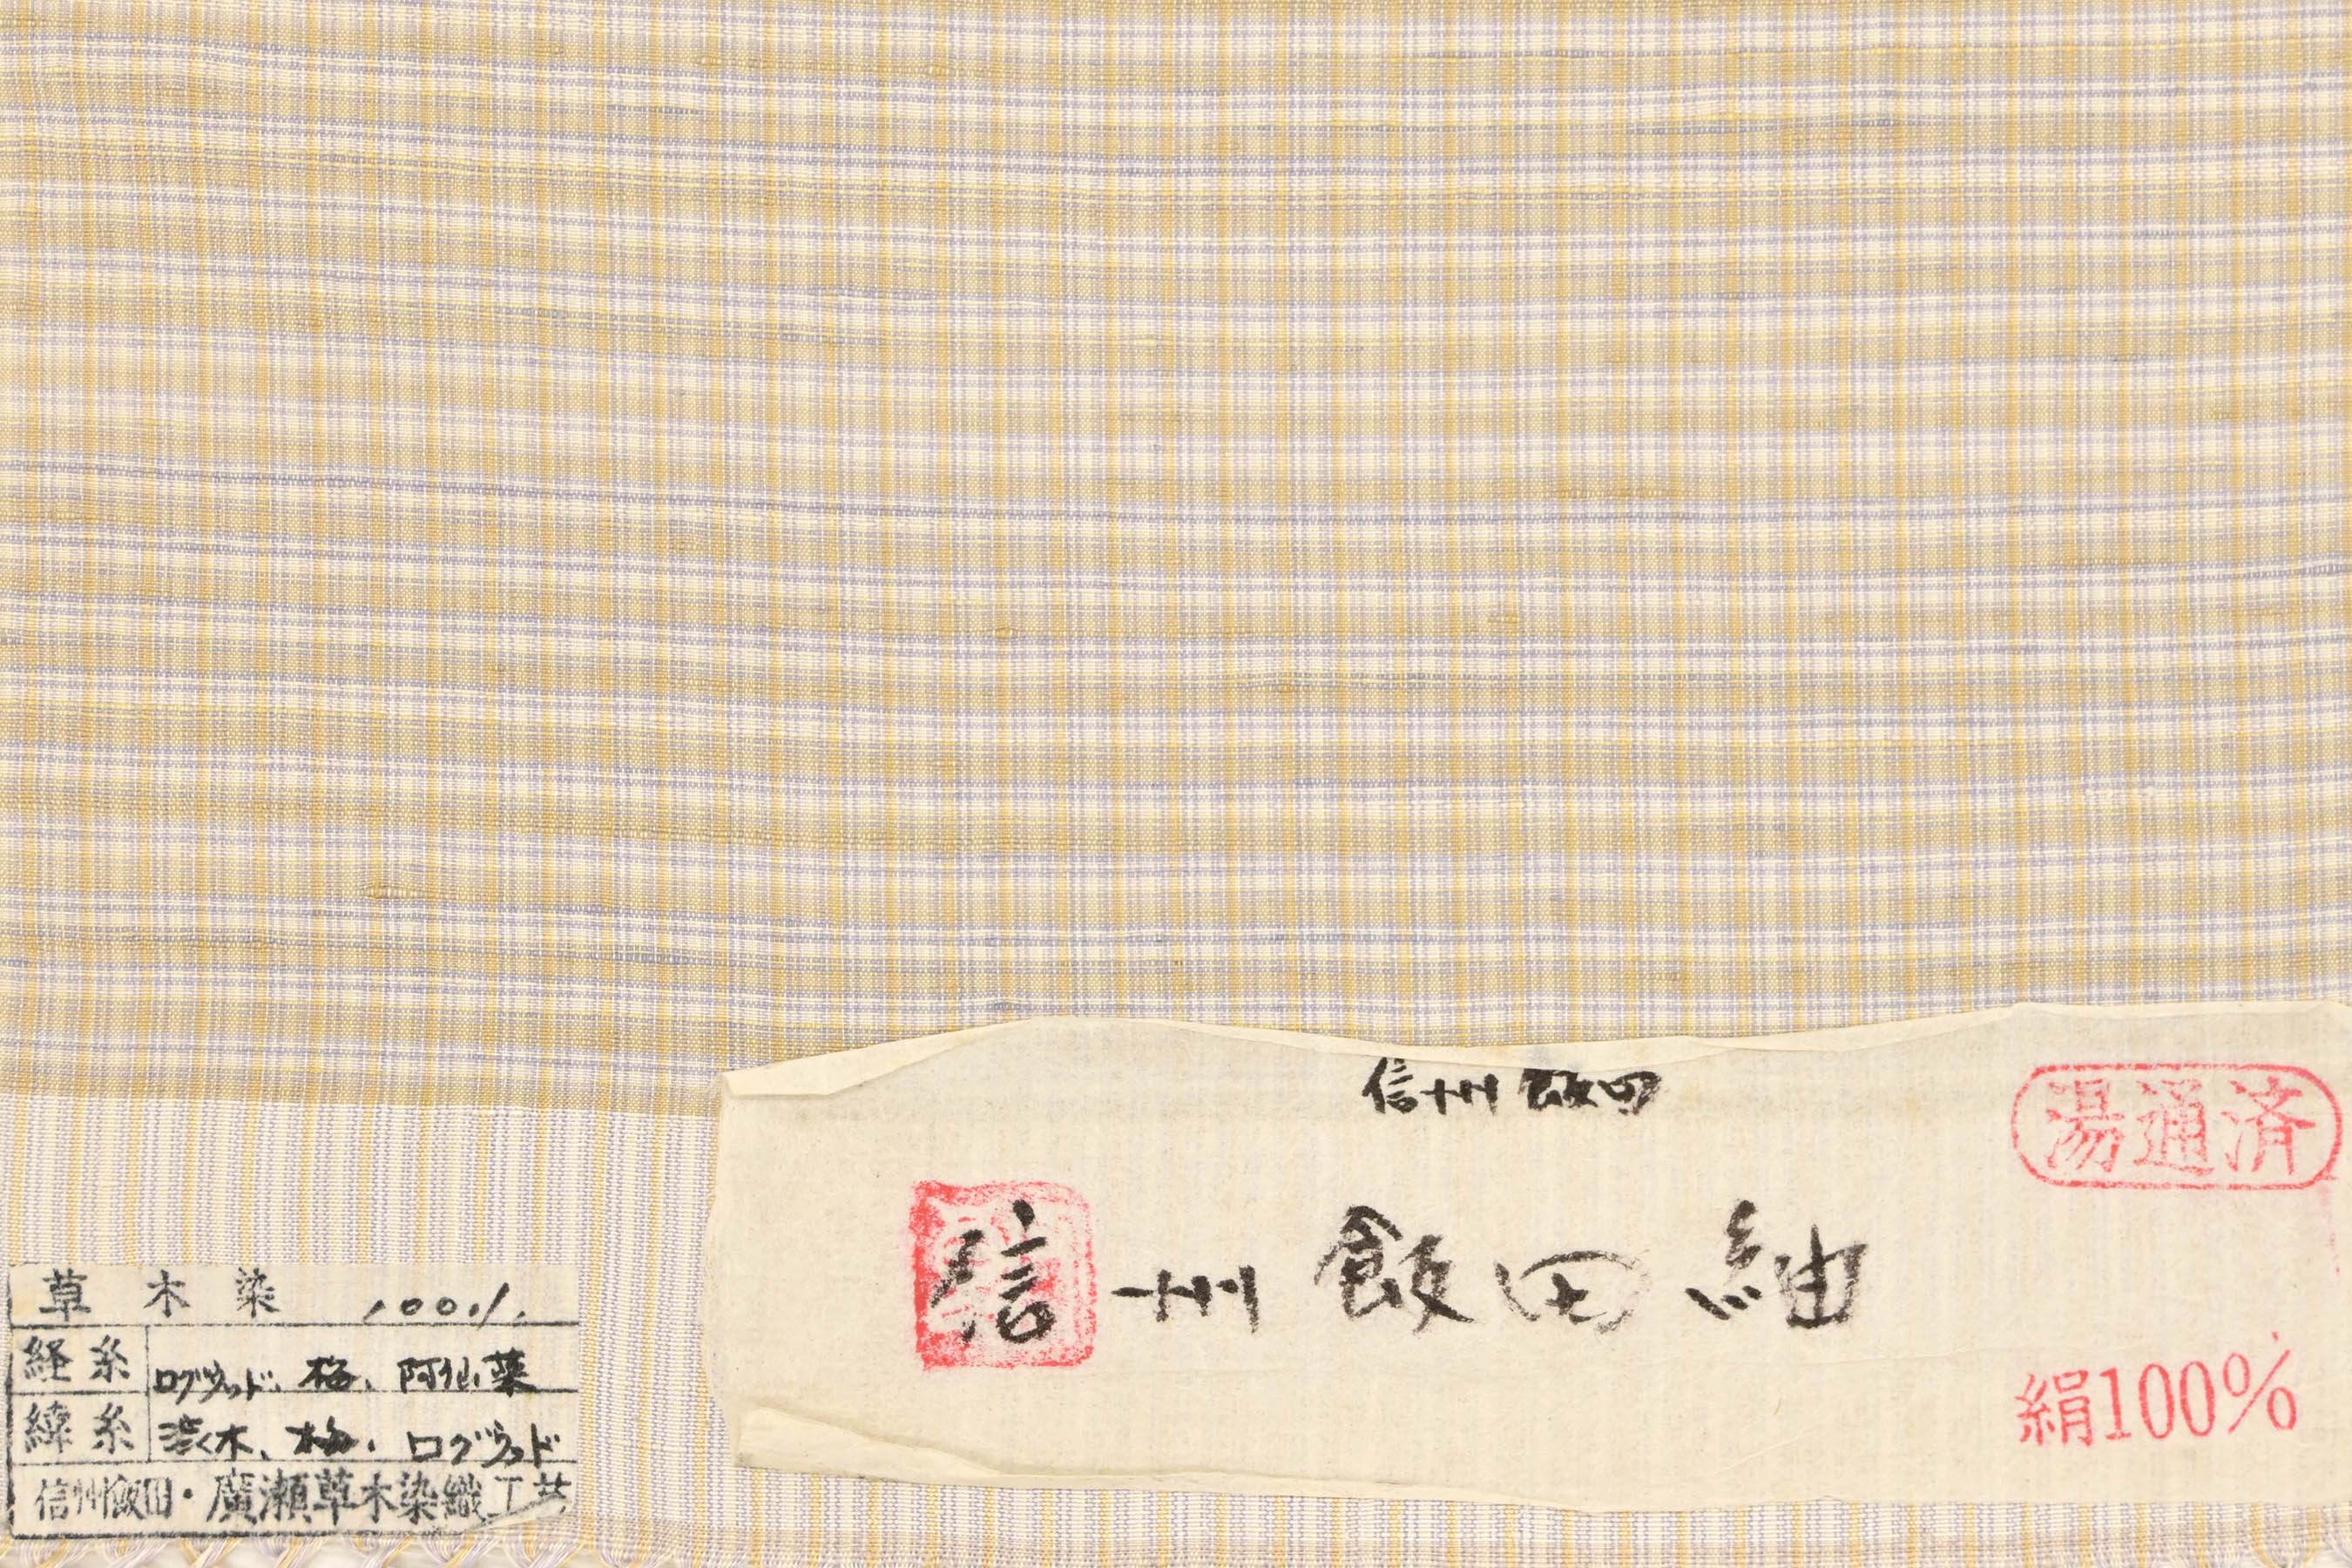 信州飯田
湯通済
信州飯田紬
絹100%
草木染 100%
経糸 ログウッド、梅、阿仙薬
緯糸 渋木、梅、ログウッド
信州飯田・廣瀬草木染織工芸